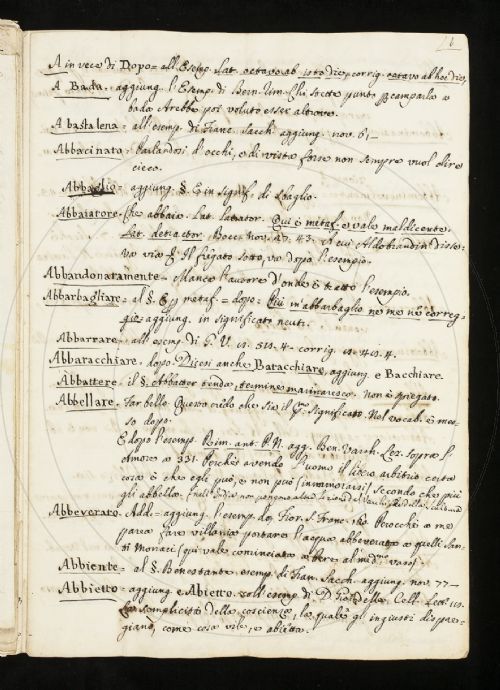 6
A in vece di Dopo = all'Esemp. Lat. octavo ab isto die, corrig. octavo ab hoc die,
A Bada - aggiung. l'Esemp. di Bern. Rim. Che stette punto per
bada Arebbe poi voluto esser altrove.
A bastalena = all'esemp. di Franc. Sacch. aggiung. nov. 61 —
Abbacinato = Parlandosi d'occhi, e di vista forse non sempre vuol dire
cieco.
Abbaglio = aggiung. §. E in signif. di sbaglio.
Abbaiatore = Che abbaia. Lat. latrator. Qui è metaf. e vale maldicente.
Lat. detractor. Bocc. Nov. 27. 43. A cui Aldobrandin disse
va via
sotto, va dopo l'esempio.
Abbandonatamente - Manca l'autore d'onde è tratto l'esempio.
Abbarbagliare = al §. E per metaf. = dopo: Qui m'abbarbaglio ne me ne correg-
gio = aggiung. in significato neut.
Abbarrare = all'esemp. di G. V. 11. 511. 4 - corrig. 11. 4.
Abbaracchiare = dopo. Dicesi anche Batacchiare, aggiung. e Bacchiare.
Abbattere - il §. Abbatter tenda, termine marinaresco. Non è spiegato.
Abbellare. Far bello. Questo credo che sia il pmo significato. Nel Vocab. è mes-
so dopo.
E dopo l'esemp. Rim. ant. P. N. agg. Ben. Varch. Lez. sopra l'
Amore a 331. Perchè avendo l'uomo il libero arbitrio certa
cosa è che egli può, e non può (innamorarsi) secondo che più
gli abbella
Abbeverato. Add. = aggiung. l'esemp. de Fior. S. Franc. Perocchè a me
parea fare villania portare l'acqua abbeverata a quelli San-
ti Monaci (qui vale cominciata a bere al medmo vaso)
Abbiente = al §. Benestante. esemp. di Fran. Sacch. aggiung. nov. 77 —
Abbietto = aggiung. e Abietto. coll'esemp. di D. Gio: delle Cell. Lett.
La semplicità della coscienza, la quale gl'ingiusti dispre-
giano, come cosa vile, e abietta.